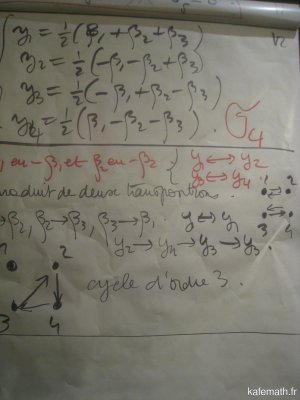 y₁ = ½(β₁ + β₂ + β₃)
y₂ = ½(-β₁ - β₂ + β₃)
y₃ = ½(-β₁ + β₂ - β₃)
y₄ = ½(β₁ - β₂ - β₃). σ₄
en -β₁ et β₂ en -β₂ { y₁ ↔ y₂
y₃ ↔ y₄
produit de deux transpositions. 1 2
3 4
→ β₂, β₂ → β₃, β₃ → β₁ y₁ ↔ y₁
y₂ → y₄ → y₃ → y₂.
1 2
cycle d'ordre 3.
3 4
kafemath.fr